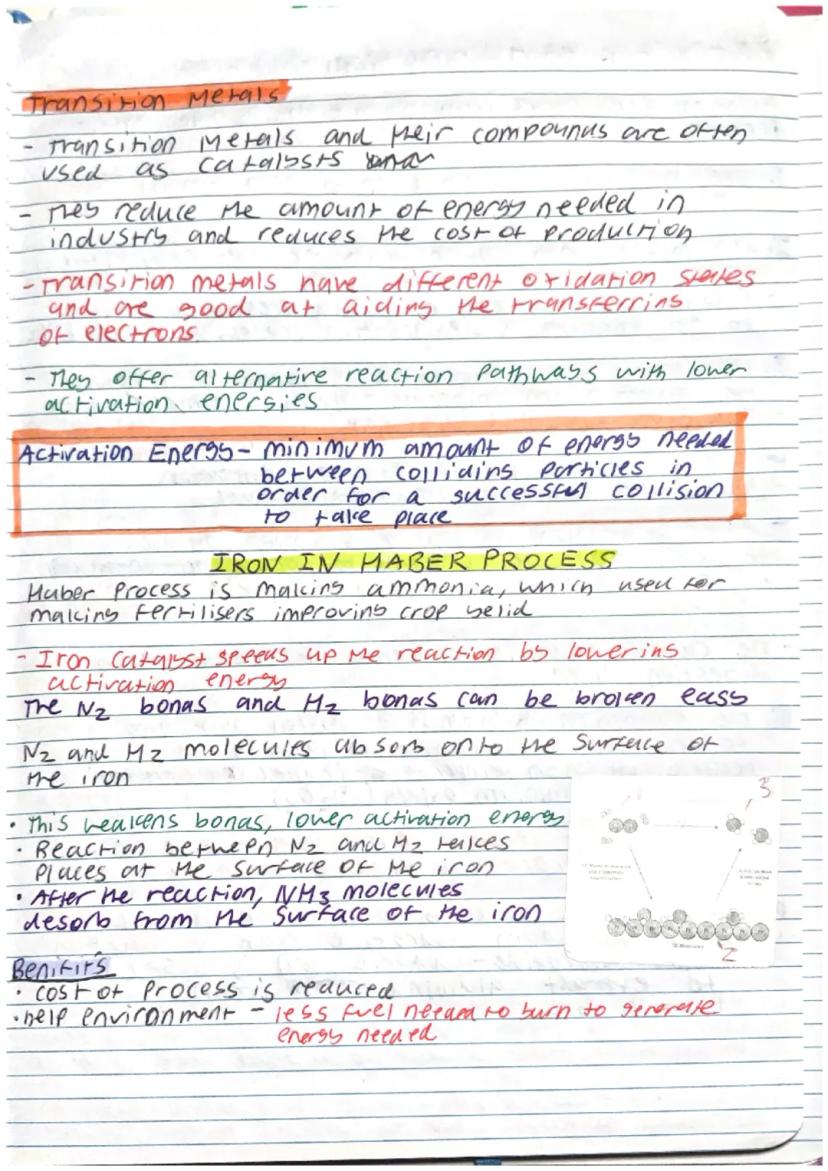 Transition Metals
- Transition Metals and their compounds are often
used as catalysts
- They reduce the amount of energy needed in
industry and reduces the cost of production
- Transition metals have different oxidation states
and are good at aiding the transferring
of electrons
- They offer alternative reaction pathways with lower
activation energies
Activation Energy - minimum amount of energy needed
between colliding particles in
order for a successful collision
to take place
IRON IN HABER PROCESS
Haber Process is making ammonia, which used for
making fertilisers improving crop yelid
- Iron catalyst speeds up the reaction by lowering
activation energy
The N2 bonds and H2 bonds can be broken easy
N2 and H2 molecules absorb onto the surface of
the iron
• This weakens bonds, lower activation energy
• Reaction between N2 and H2 takes
places at the surface of the iron
• After the reaction, NH3 molecules
desorb from the surface of the iron
3
2
Benifits
• cost of process is reduced
• help environment - less fuel needed to burn to generate
energy needed